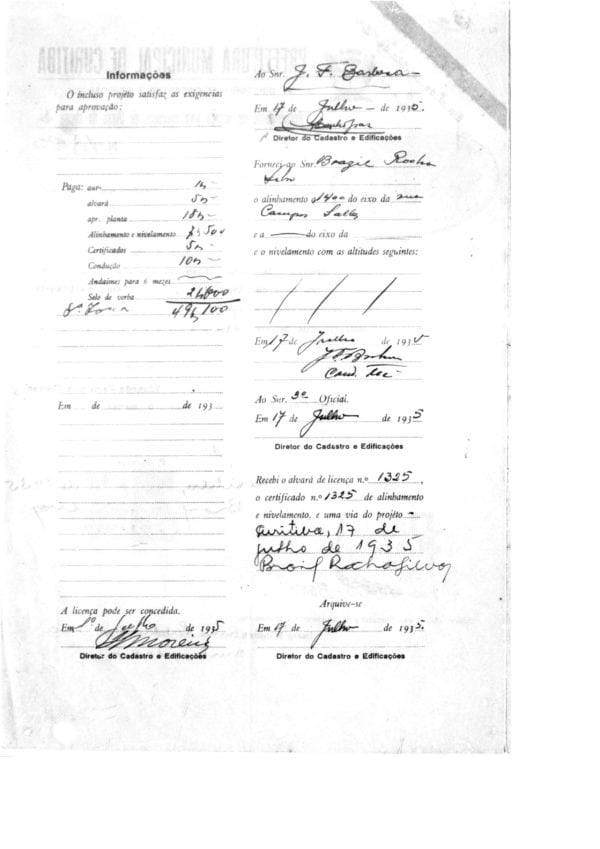 PREFEITURA MUNICIPAL DE CURITIBA
Informações
O incluso projéto satisfaz as exigencias
para aprovação:
Paga:
alvará 5$
apr. planta 18$
Alinhamento e nivelamento
Certificados 5$
Condução 10$
Andaimes para 6 mezes
Selo de verba
Em de de 193
A licença pode ser concedida.
Em 1º de Julho de 1935
Diretor do Cadastro e Edificações
Ao Snr. J. F. Barbosa
Em 17 de Julho de 1935.
Diretor do Cadastro e Edificações
Forneci ao Snr. Brazil Rocha
o alinhamento a do eixo da rua
Campos Salles
e a do eixo da
e o nivelamento com as altitudes seguintes:
Em 17 de Julho de 1935
Cond. Tec.
Ao Snr. 3º Oficial.
Em 17 de Julho de 1935
Diretor do Cadastro e Edificações
Recebi o alvará de licença n.º 1325,
o certificado n.º 1325 de alinhamento
e nivelamento, e uma via do projéto
Curitiba, 17 de
julho de 1935
Arquive-se
Em 17 de Julho de 1935.
Diretor do Cadastro e Edificações